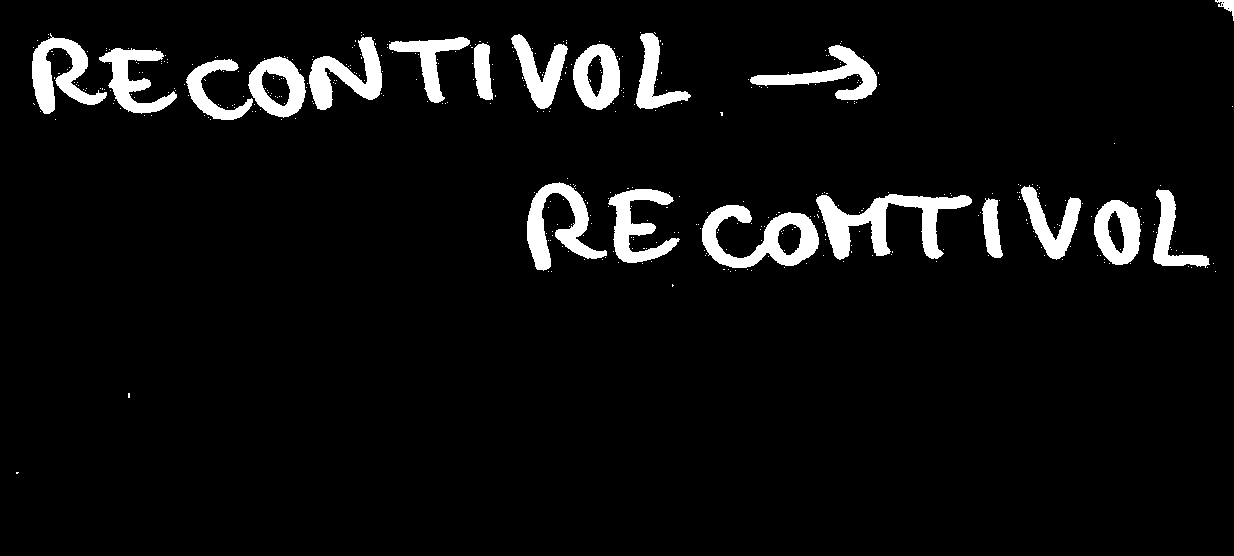 RECONTIVOL →
RECOMTIVOL